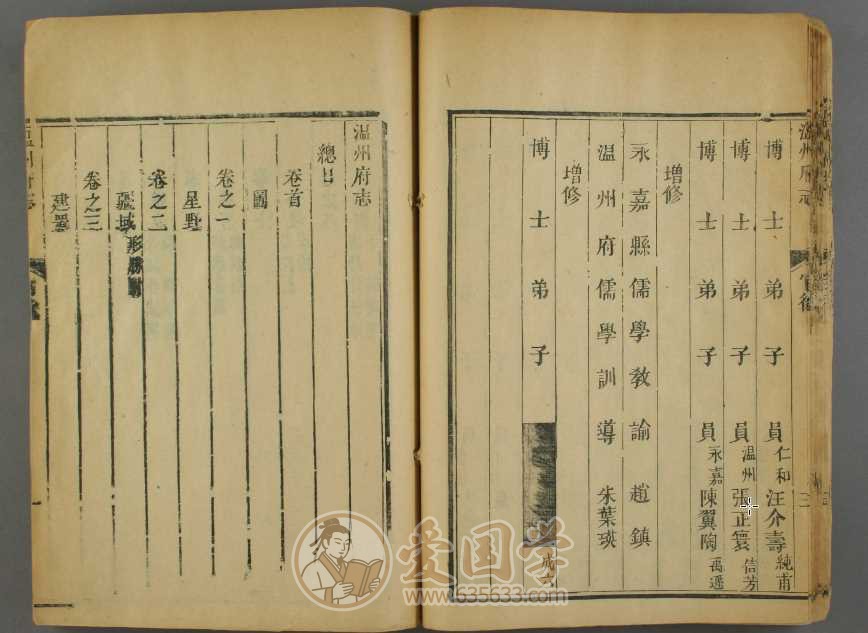 博士弟子員仁和汪介壽純甫
博士弟子員温州張正寰信芳
博士弟子員永嘉陳翼陶禹遜
增修
永嘉縣儒學教諭趙鎮
温州府儒學訓導朱葉瑛
增修
博士弟子
成六
温州府志
總目
卷首
圖
卷之一
星野
卷之二
疆域形勝附
卷之三
建置
爱国学
www.635633.com